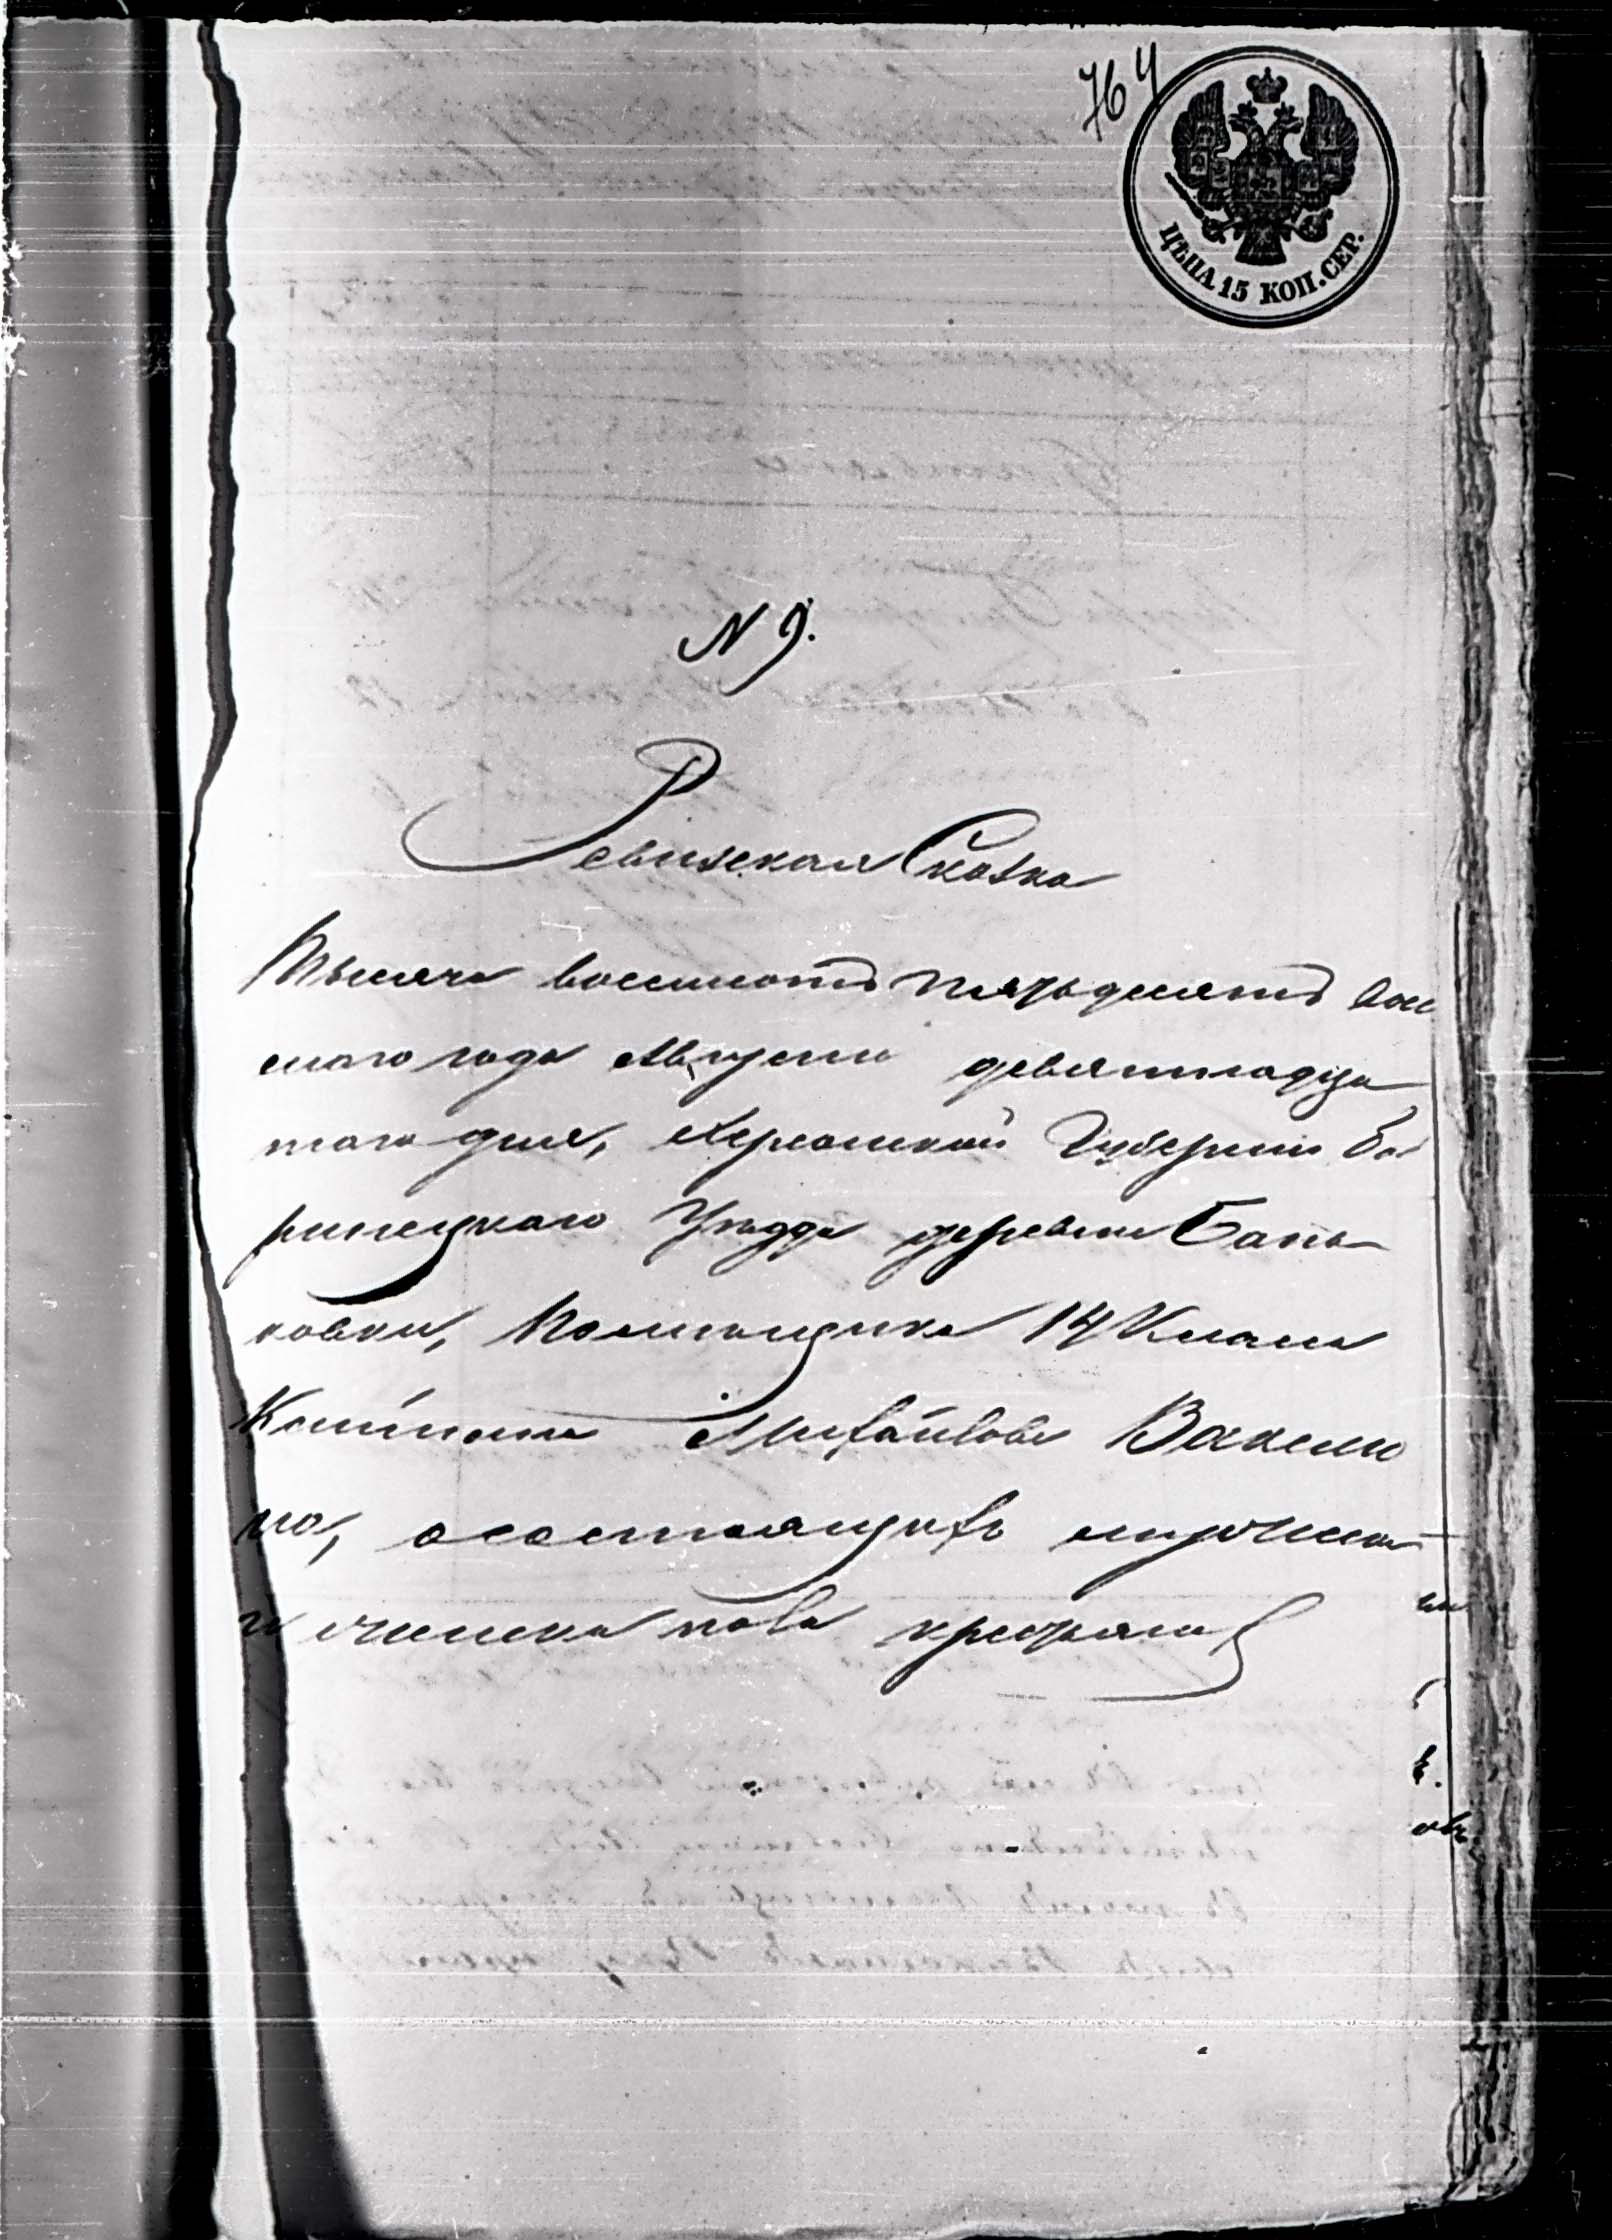 764
ЦѢНА 15 КОП. СЕР.
N 9.
Ревизская Сказка
Тысяча восемьсотъ пятьдесятъ вось
маго года Августа девятнадца
таго дня, Херсонской Губерніи Бо
бринецкаго Уѣзда деревни Бань
ковки, Помещика 14 Класа
Михайлова
о состоящихъ мужеска
и женска пола крестьянъ